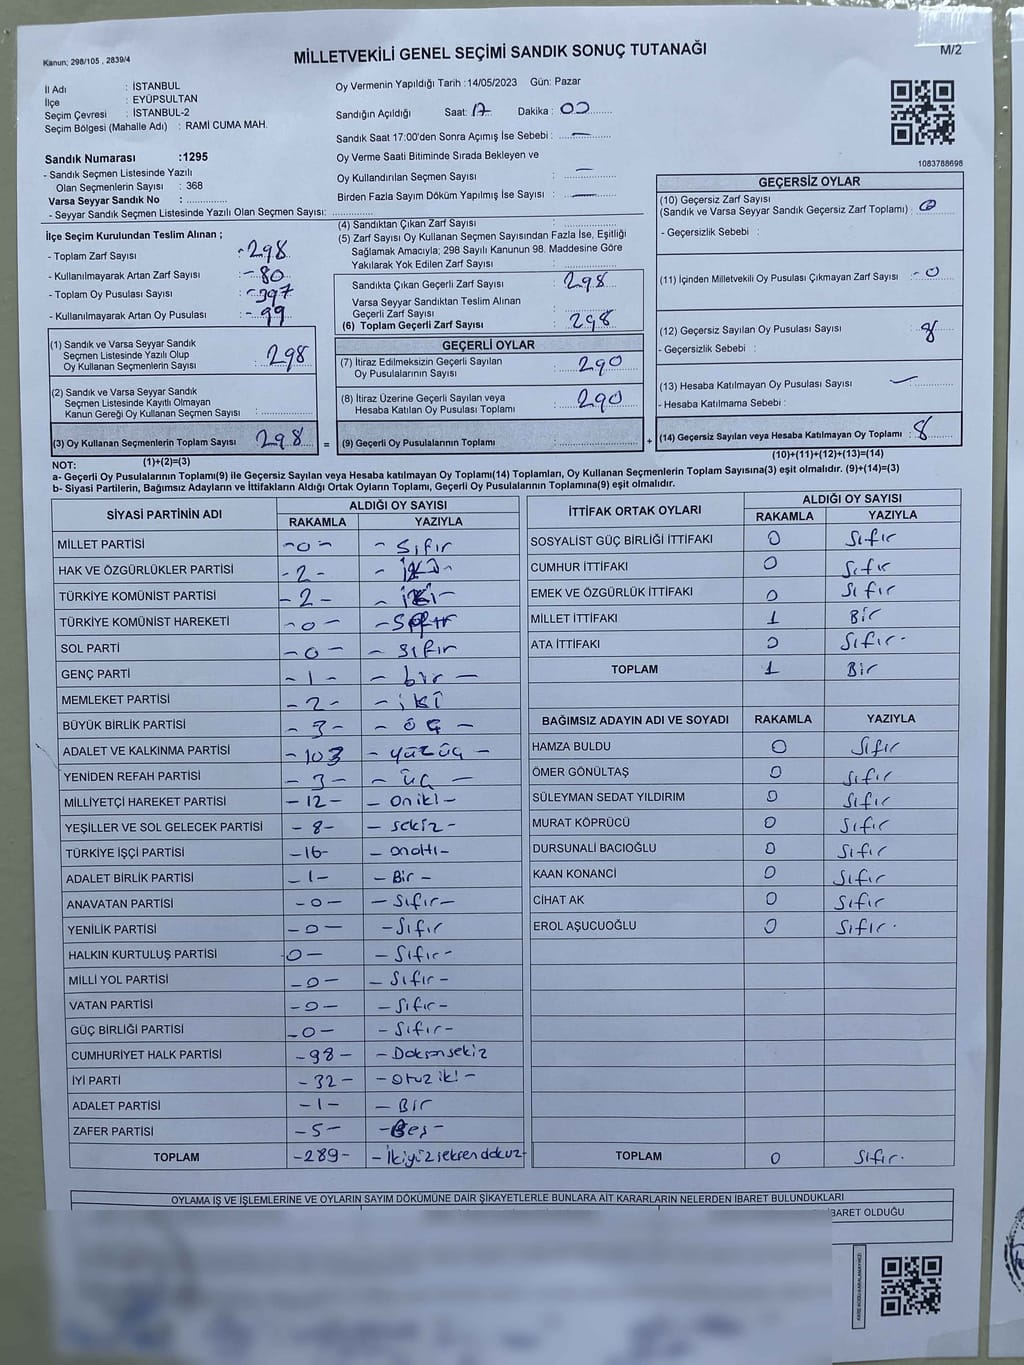 Kanun; 298/105 , 2839/4
MİLLETVEKİLİ GENEL SEÇİMİ SANDIK SONUÇ TUTANAĞI
M/2
İl Adı : İSTANBUL
İlçe : EYÜPSULTAN
Seçim Çevresi : İSTANBUL-2
Seçim Bölgesi (Mahalle Adı) : RAMİ CUMA MAH.
Sandık Numarası :1295
- Sandık Seçmen Listesinde Yazılı
Olan Seçmenlerin Sayısı : 368
Varsa Seyyar Sandık No :
- Seyyar Sandık Seçmen Listesinde Yazılı Olan Seçmen Sayısı:
Oy Vermenin Yapıldığı Tarih :14/05/2023 Gün: Pazar
Sandığın Açıldığı Saat: 17 Dakika : 00
Sandık Saat 17:00'den Sonra Açımış İse Sebebi : —
Oy Verme Saati Bitiminde Sırada Bekleyen ve
Oy Kullandırılan Seçmen Sayısı : —
Birden Fazla Sayım Döküm Yapılmış İse Sayısı : —
1083788698
İlçe Seçim Kurulundan Teslim Alınan ;
- Toplam Zarf Sayısı : -298
- Kullanılmayarak Artan Zarf Sayısı : -80
- Toplam Oy Pusulası Sayısı : -397
- Kullanılmayarak Artan Oy Pusulası : -99
(1) Sandık ve Varsa Seyyar Sandık
Seçmen Listesinde Yazılı Olup
Oy Kullanan Seçmenlerin Sayısı : 298
(2) Sandık ve Varsa Seyyar Sandık
Seçmen Listesinde Kayıtlı Olmayan
Kanun Gereği Oy Kullanan Seçmen Sayısı :
(3) Oy Kullanan Seçmenlerin Toplam Sayısı 298 =
(1)+(2)=(3)
(4) Sandıktan Çıkan Zarf Sayısı :
(5) Zarf Sayısı Oy Kullanan Seçmen Sayısından Fazla İse, Eşitliği
Sağlamak Amacıyla; 298 Sayılı Kanunun 98. Maddesine Göre
Yakılarak Yok Edilen Zarf Sayısı :
Sandıkta Çıkan Geçerli Zarf Sayısı : 298
Varsa Seyyar Sandıktan Teslim Alınan
Geçerli Zarf Sayısı :
(6) Toplam Geçerli Zarf Sayısı : 298
GEÇERLİ OYLAR
(7) İtiraz Edilmeksizin Geçerli Sayılan
Oy Pusulalarının Sayısı : 290
(8) İtiraz Üzerine Geçerli Sayılan veya
Hesaba Katılan Oy Pusulası Toplamı : 290
(9) Geçerli Oy Pusulalarının Toplamı : +
GEÇERSİZ OYLAR
(10) Geçersiz Zarf Sayısı
(Sandık ve Varsa Seyyar Sandık Geçersiz Zarf Toplamı) :
- Geçersizlik Sebebi :
(11) İçinden Milletvekili Oy Pusulası Çıkmayan Zarf Sayısı : -0
(12) Geçersiz Sayılan Oy Pusulası Sayısı : 8
- Geçersizlik Sebebi :
(13) Hesaba Katılmayan Oy Pusulası Sayısı : —
- Hesaba Katılmama Sebebi :
(14) Geçersiz Sayılan veya Hesaba Katılmayan Oy Toplamı : 8
(10)+(11)+(12)+(13)=(14)
NOT:
a- Geçerli Oy Pusulalarının Toplamı(9) ile Geçersiz Sayılan veya Hesaba katılmayan Oy Toplamı(14) Toplamları, Oy Kullanan Seçmenlerin Toplam Sayısına(3) eşit olmalıdır. (9)+(14)=(3)
b- Siyasi Partilerin, Bağımsız Adayların ve İttifakların Aldığı Ortak Oyların Toplamı, Geçerli Oy Pusulalarının Toplamına(9) eşit olmalıdır.
SİYASİ PARTİNİN ADI ALDIĞI OY SAYISI
RAKAMLA YAZIYLA
MİLLET PARTİSİ -0- - Sıfır
HAK VE ÖZGÜRLÜKLER PARTİSİ -2- - İki-
TÜRKİYE KOMÜNİST PARTİSİ -2- - iki-
TÜRKİYE KOMÜNİST HAREKETİ -0- -Sıfır
SOL PARTİ -0- - Sıfır
GENÇ PARTİ -1- - bir -
MEMLEKET PARTİSİ -2- - iki
BÜYÜK BİRLİK PARTİSİ -3- - üç -
ADALET VE KALKINMA PARTİSİ -103 - yüzüç -
YENİDEN REFAH PARTİSİ -3- - Üç -
MİLLİYETÇİ HAREKET PARTİSİ -12- - oniki-
YEŞİLLER VE SOL GELECEK PARTİSİ -8- - sekiz-
TÜRKİYE İŞÇİ PARTİSİ -16- - onaltı-
ADALET BİRLİK PARTİSİ -1- - Bir -
ANAVATAN PARTİSİ -0- - Sıfır-
YENİLİK PARTİSİ -0- - Sıfır
HALKIN KURTULUŞ PARTİSİ -0- - Sıfır-
MİLLİ YOL PARTİSİ -0- - Sıfır-
VATAN PARTİSİ -0- - Sıfır-
GÜÇ BİRLİĞİ PARTİSİ -0- - Sıfır-
CUMHURİYET HALK PARTİSİ -98- - Doksansekiz
İYİ PARTİ -32- - otuz iki-
ADALET PARTİSİ -1- - Bir
ZAFER PARTİSİ -5- -Beş-
TOPLAM -289- - İkiyüzseksendokuz-
İTTİFAK ORTAK OYLARI ALDIĞI OY SAYISI
RAKAMLA YAZIYLA
SOSYALİST GÜÇ BİRLİĞİ İTTİFAKI 0 Sıfır
CUMHUR İTTİFAKI 0 Sıfır
EMEK VE ÖZGÜRLÜK İTTİFAKI 0 Sıfır
MİLLET İTTİFAKI 1 Bir
ATA İTTİFAKI 0 Sıfır.
TOPLAM 1 Bir
BAĞIMSIZ ADAYIN ADI VE SOYADI RAKAMLA YAZIYLA
HAMZA BULDU 0 Sıfır
ÖMER GÖNÜLTAŞ 0 Sıfır
SÜLEYMAN SEDAT YILDIRIM 0 Sıfır
MURAT KÖPRÜCÜ 0 Sıfır
DURSUNALİ BACIOĞLU 0 Sıfır
KAAN KONANCİ 0 Sıfır
CİHAT AK 0 Sıfır
EROL AŞUCUOĞLU 0 Sıfır.
TOPLAM 0 Sıfır.
OYLAMA İŞ VE İŞLEMLERİNE VE OYLARIN SAYIM DÖKÜMÜNE DAİR ŞİKAYETLERLE BUNLARA AİT KARARLARIN NELERDEN İBARET BULUNDUKLARI
BARET OLDUĞU